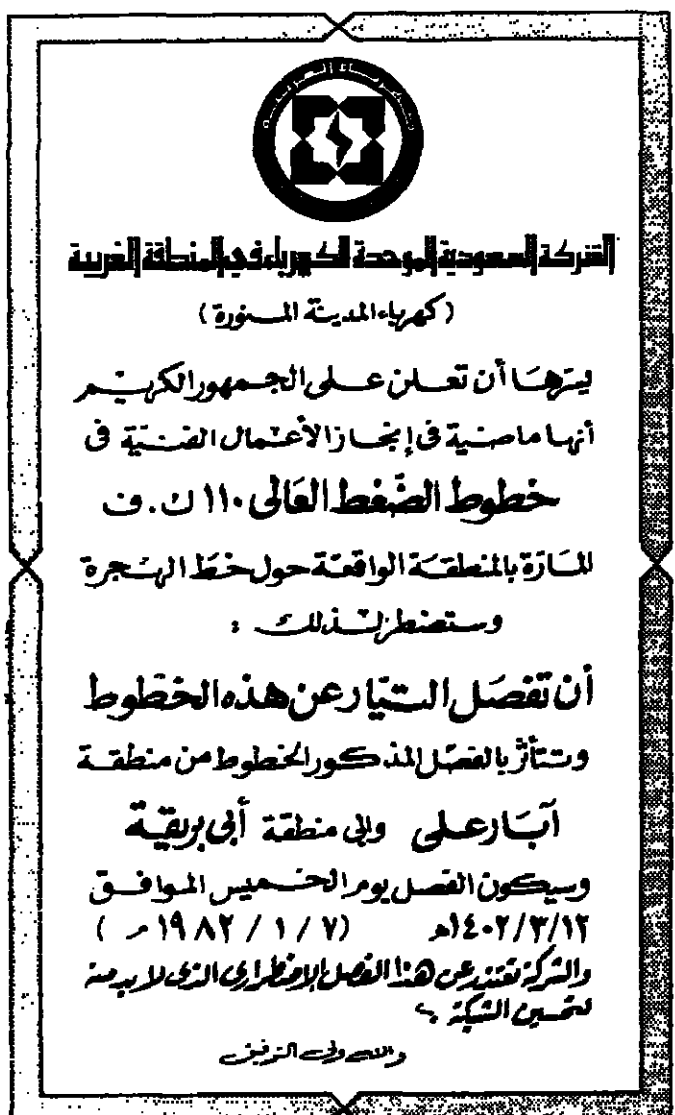 الشركة السعودية الموحدة للكهرباء في المنطقة الغربية
(كهرباء المدينة المنورة)
يسرها أن تعلن على الجمهور الكريم
أنها ماضية في إنجاز الأعمال الفنية في
خطوط الضغط العالى ١١٠ ك.ف
المارة بالمنطقة الواقعة حول خط الهجرة
وستضطر لذلك :
أن تفصل التيار عن هذه الخطوط
وتتأثر بالفصل المذكور الخطوط من منطقة
آبار على وإلى منطقة أبى بريقية
وسيكون الفصل يوم الخميس الموافق
١٤٠٢/٣/١٢هـ (١٩٨٢/١/٧م)
والشركة تعتذر عن هذا الفصل الاضطرارى الذى لابد منه
لتحسين الشبكة ،
والله ولى التوفيق